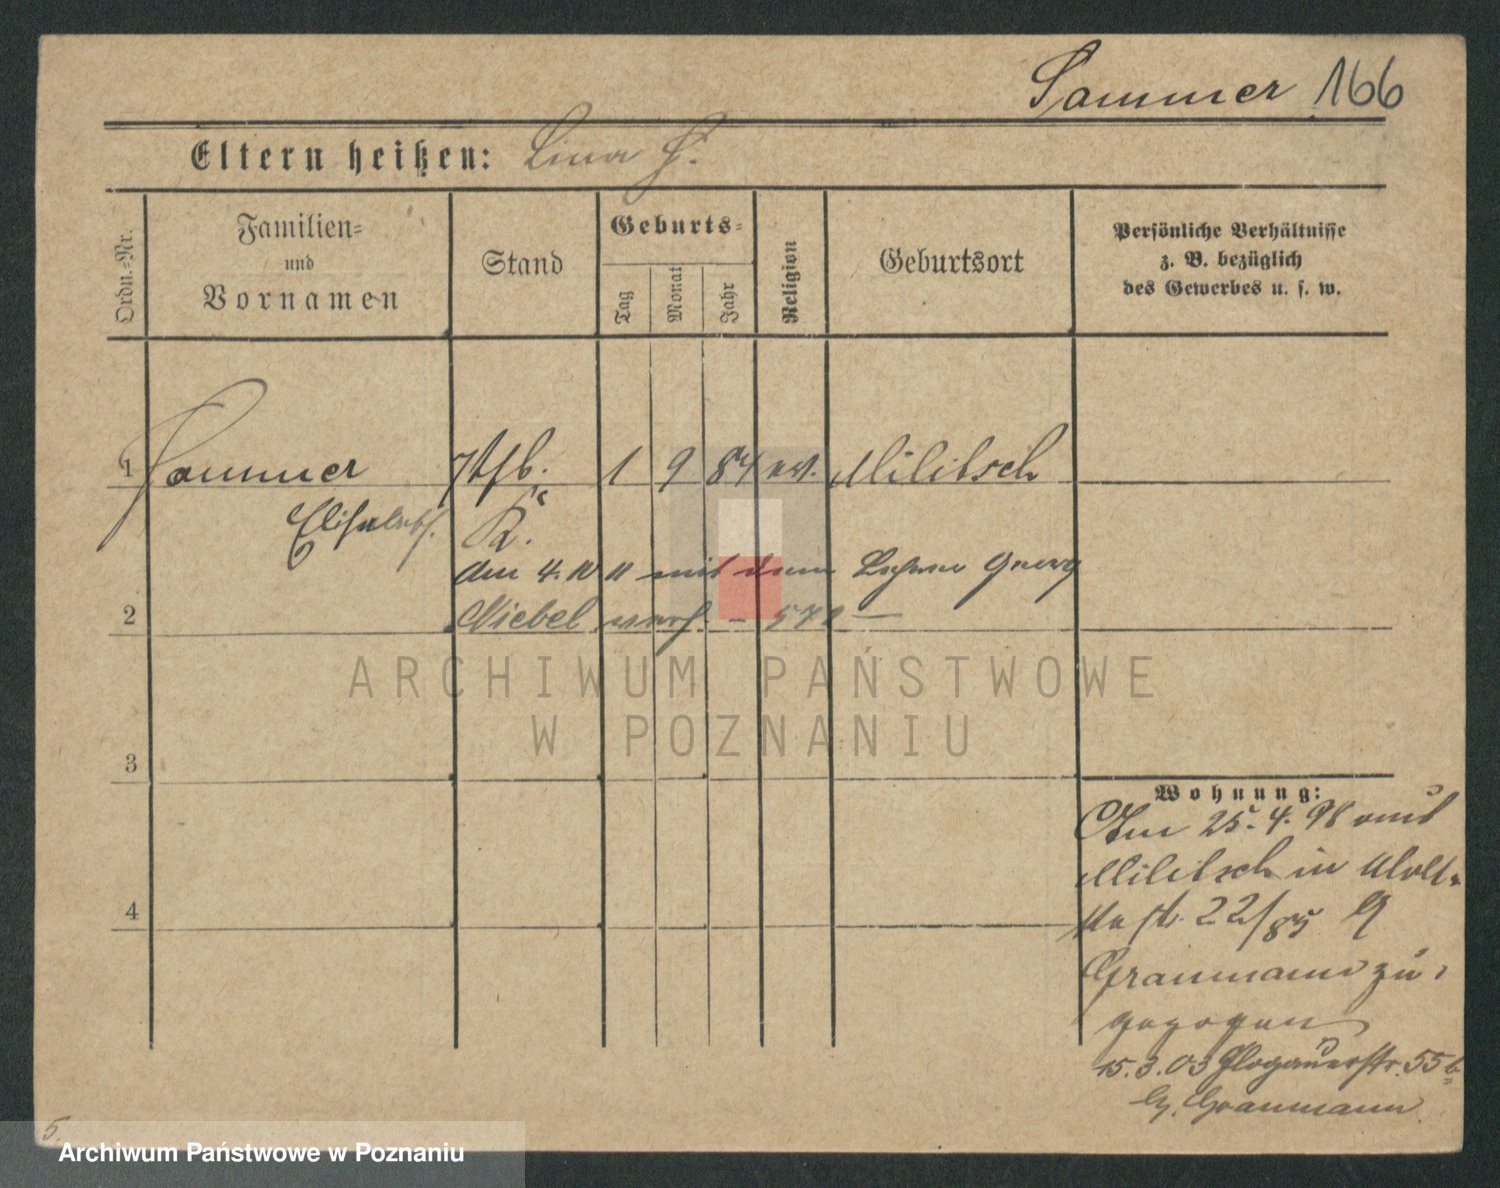 Sommer 166
Eltern heißen: Lina S.
Ordn.-Nr.
Familien-
und
Vornamen
Stand
Geburts-
Tag
Monat
Jahr
Religion
Geburtsort
Persönliche Verhältnisse
z. B. bezüglich
des Gewerbes u. s. w.
1 Sommer 1 9 84 ev. Militsch
Elisabeth.
den 4. 10 11 mit dem Georg
2 Niebel verh.
ARCHIWUM PAŃSTWOWE
W POZNANIU
3
4
Wohnung:
Am 25. 4. 98 aus
Militsch in Molt-
kestr. 22/85
Granmann zu-
gezogen
15.3.03 Glogauerstr. 55
Granmann
5.
Archiwum Państwowe w Poznaniu